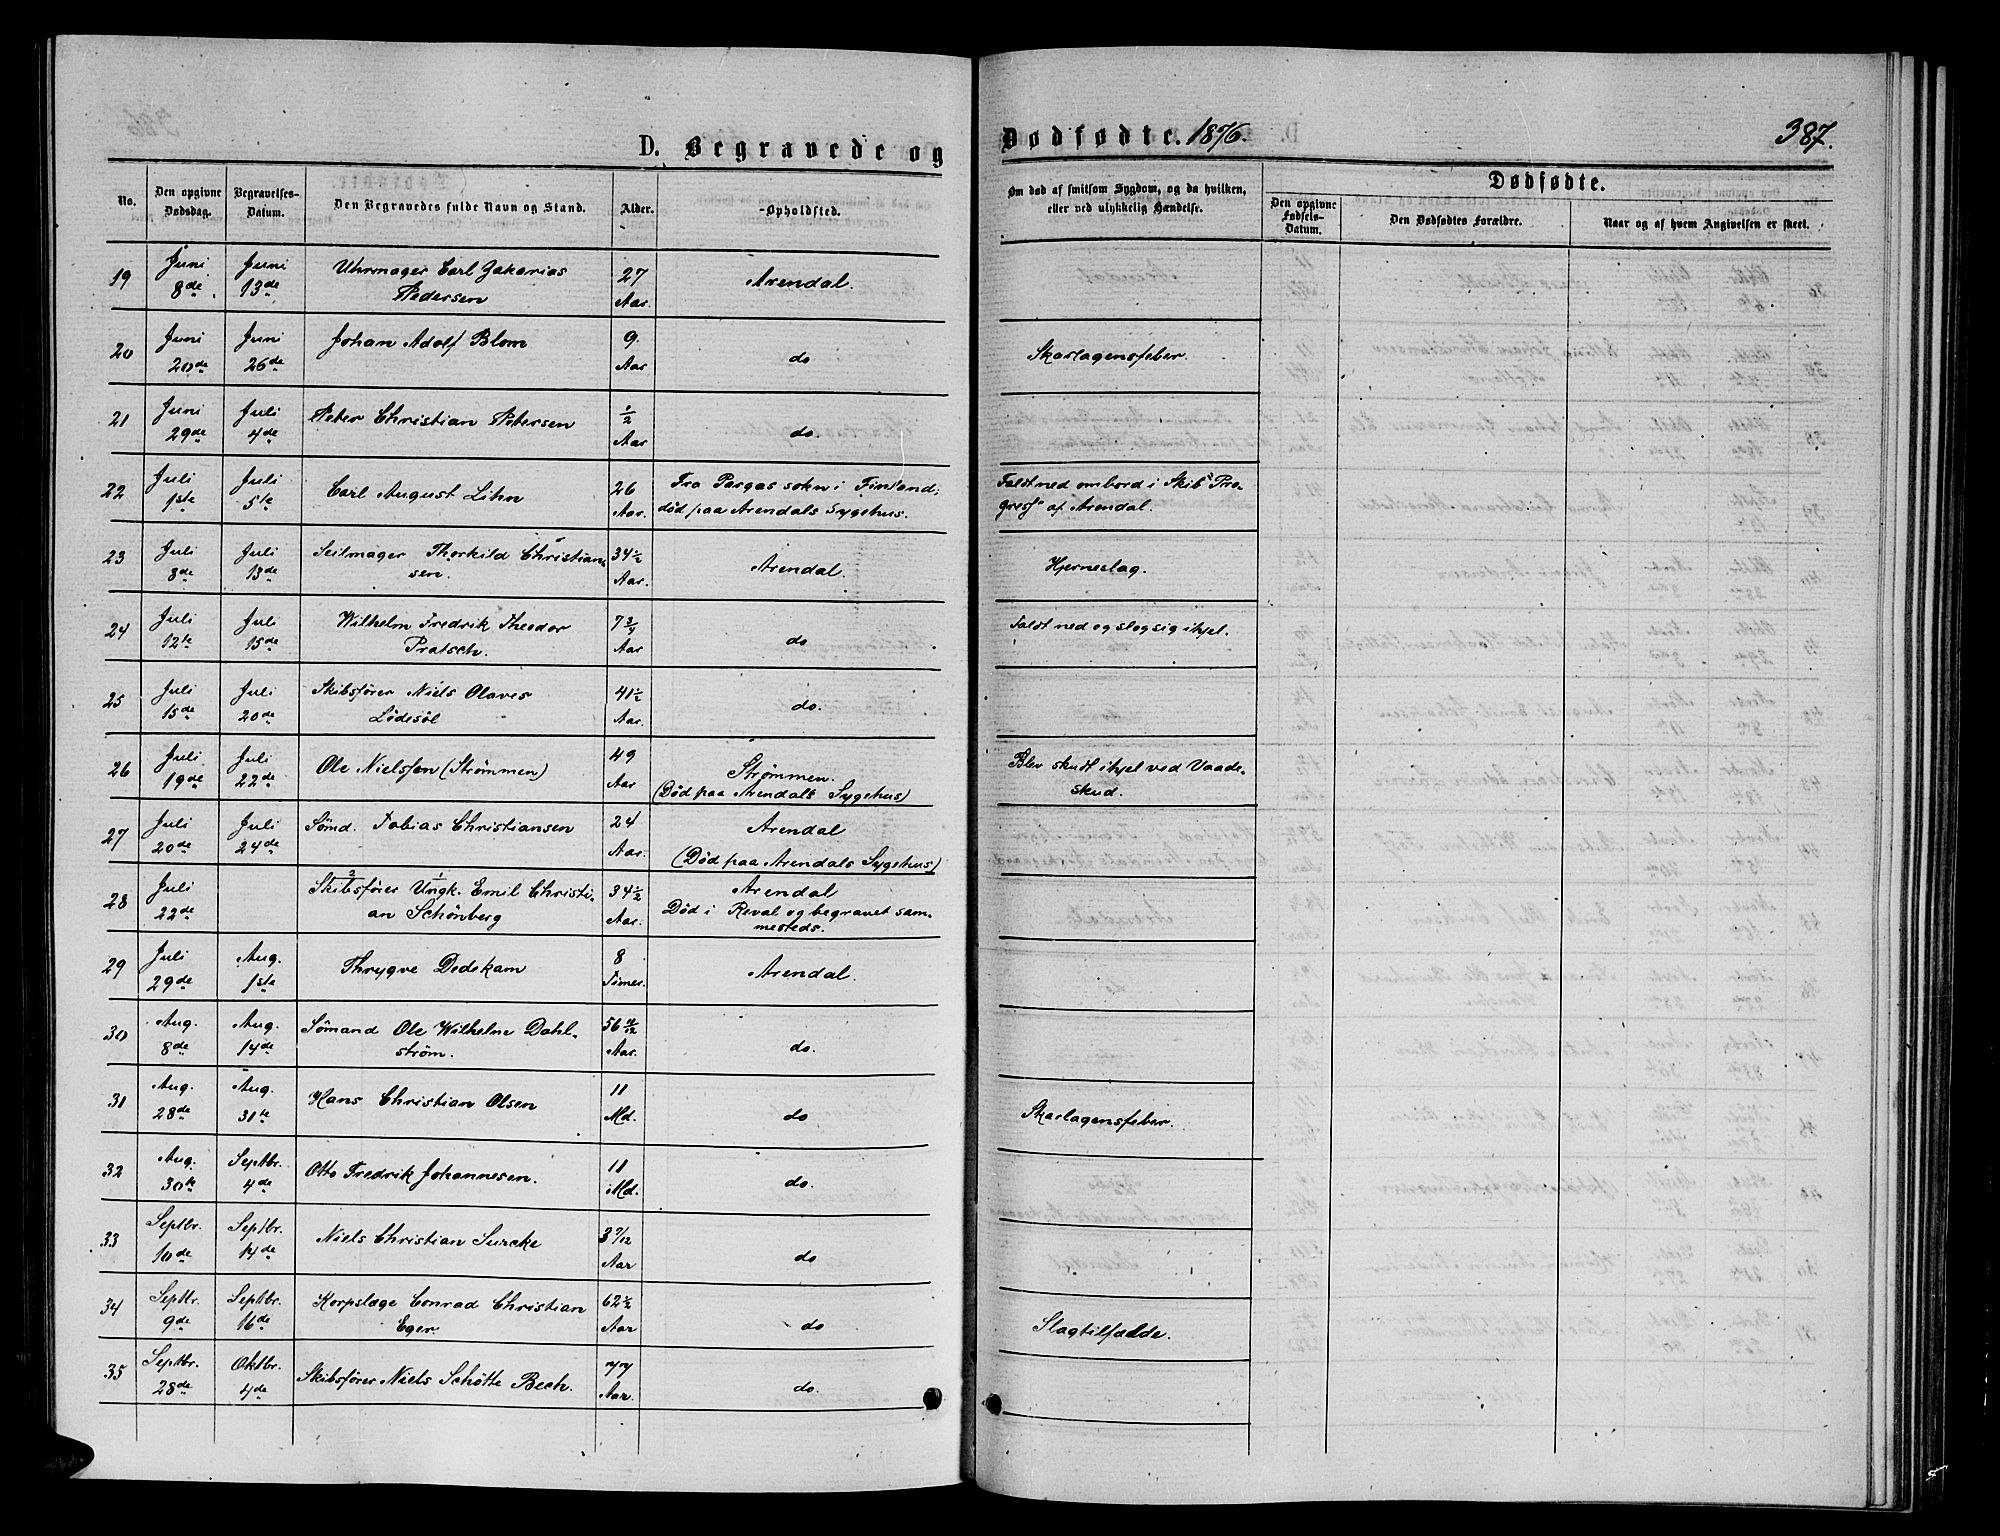 D. Begravede og
Dødfødte. 1876.
387.
No.
Den opgivne Dødsdag.
Begravelses-Datum.
Den Begravedes fulde Navn og Stand.
Alder.
Opholdsted.
Om død af smitsom Sygdom, og da hvilken, eller ved ulykkelig Hændelse.
Dødfødte.
Den opgivne Fødsels-Datum.
Den Dødfødtes Forældre.
Naar og af hvem Angivelsen er skeet.
19 Juni 8de Juni 13de Uhrmager Carl Zakarias Pedersen 27 Aar. Arendal.
20 Juni 20de Juni 26de Johan Adolf Blom 9 Aar do Skarlagensfeber.
21 Juni 29de Juli 4de Peter Christian Petersen 1/2 Aar do.
22 Juli 1ste Juli 5te Carl August Lihn 26 Aar. Fra Pargas sokn i Finland; død paa Arendals Sygehus. Faldt ned ombord i Skib "Progress" af Arendal.
23 Juli 8de Juli 13de Seilmager Thorkild Christiansen. 34 1/2 Aar. Arendal. Hjerneslag.
24 Juli 12te Juli 15de Wilhelm Fredrik Theodor Pratsch. 7 3/4 Aar do Faldt ned og slog sig ihjel.
25 Juli 15de Juli 20de Skibsfører Niels Olaves Lödesöl 41 1/2 Aar. do.
26 Juli 19de Juli 22de Ole Nielsen (Strømmen) 49 Aar Strømmen. (Død paa Arendals Sygehus) Blev skudt ihjel ved Vaadeskud.
27 Juli 20de Juli 24de Sømd. Tobias Christiansen 24 Aar. Arendal (Død paa Arendals Sygehus)
28 Juli 22de Skibsfører Ungk. Emil Christian Schönberg 34 1/2 Aar. Arendal Død i Reval og begravet sammesteds.
29 Juli 29de Aug. 1ste Thrygve Dedekam 8 Timer. Arendal.
30 Aug. 8de Aug. 14de Sømand Ole Wilhelm Dahlström. 56 Aar. do.
31 Aug. 28de Aug. 31te Hans Christian Olsen 11 Md. do Skarlagensfeber.
32 Aug. 30te Septbr. 4de Otto Fredrik Johannesen. 11 Md. do.
33 Septbr. 10de Septbr. 14de Niels Christian Surcke 3 7/12 Aar do
34 Septbr. 9de Septbr. 16de Korpslæge Conrad Christian Eger. 62 1/2 Aar do Slagtilfælde.
35 Septbr. 28de Oktbr. 4de Skibsfører Niels Schøtte Bech. 77 Aar. do.